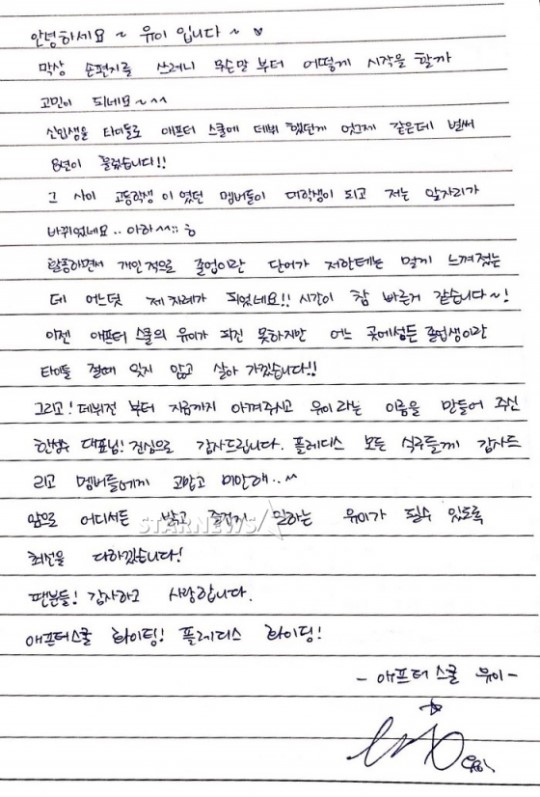 안녕하세요~ 유이 입니다~ ♥
막상 손편지를 쓰려니 무슨말부터 어떻게 시작을 할까
고민이 되네요~^^
신입생을 타이틀로 애프터 스쿨에 데뷔 했던게 엊그제 같은데 벌써
8년이 흘렀습니다!!
그 사이 고등학생 이였던 멤버들이 대학생이 되고 저는 앞자리가
바뀌었네요.. 아하^^;; ㅎ
활동하면서 개인적으로 졸업이란 단어가 저한테는 멀게 느껴졌는
데 어느덧 제 차례가 되었네요!! 시간이 참 빠른거 같습니다~!
이젠 애프터 스쿨의 유이가 되진 못하지만 어느 곳에서든 졸업생이란
타이틀 절때 잊지 않고 살아 가겠습니다!!
그리고! 데뷔전 부터 지금까지 아껴주시고 유이라는 이름을 만들어 주신
한성수 대표님! 진심으로 감사드립니다. 플레디스 모든 식구들께 감사드
리고 멤버들에게 고맙고 미안해..^^
앞으로 어디서든 밝고 즐겁게 일하는 유이가 될수 있도록
최선을 다하겠습니다!
팬분들! 감사하고 사랑합니다.
애프터스쿨 화이팅! 플레디스 화이팅!
- 애프터 스쿨 유이 -
STARNEWS